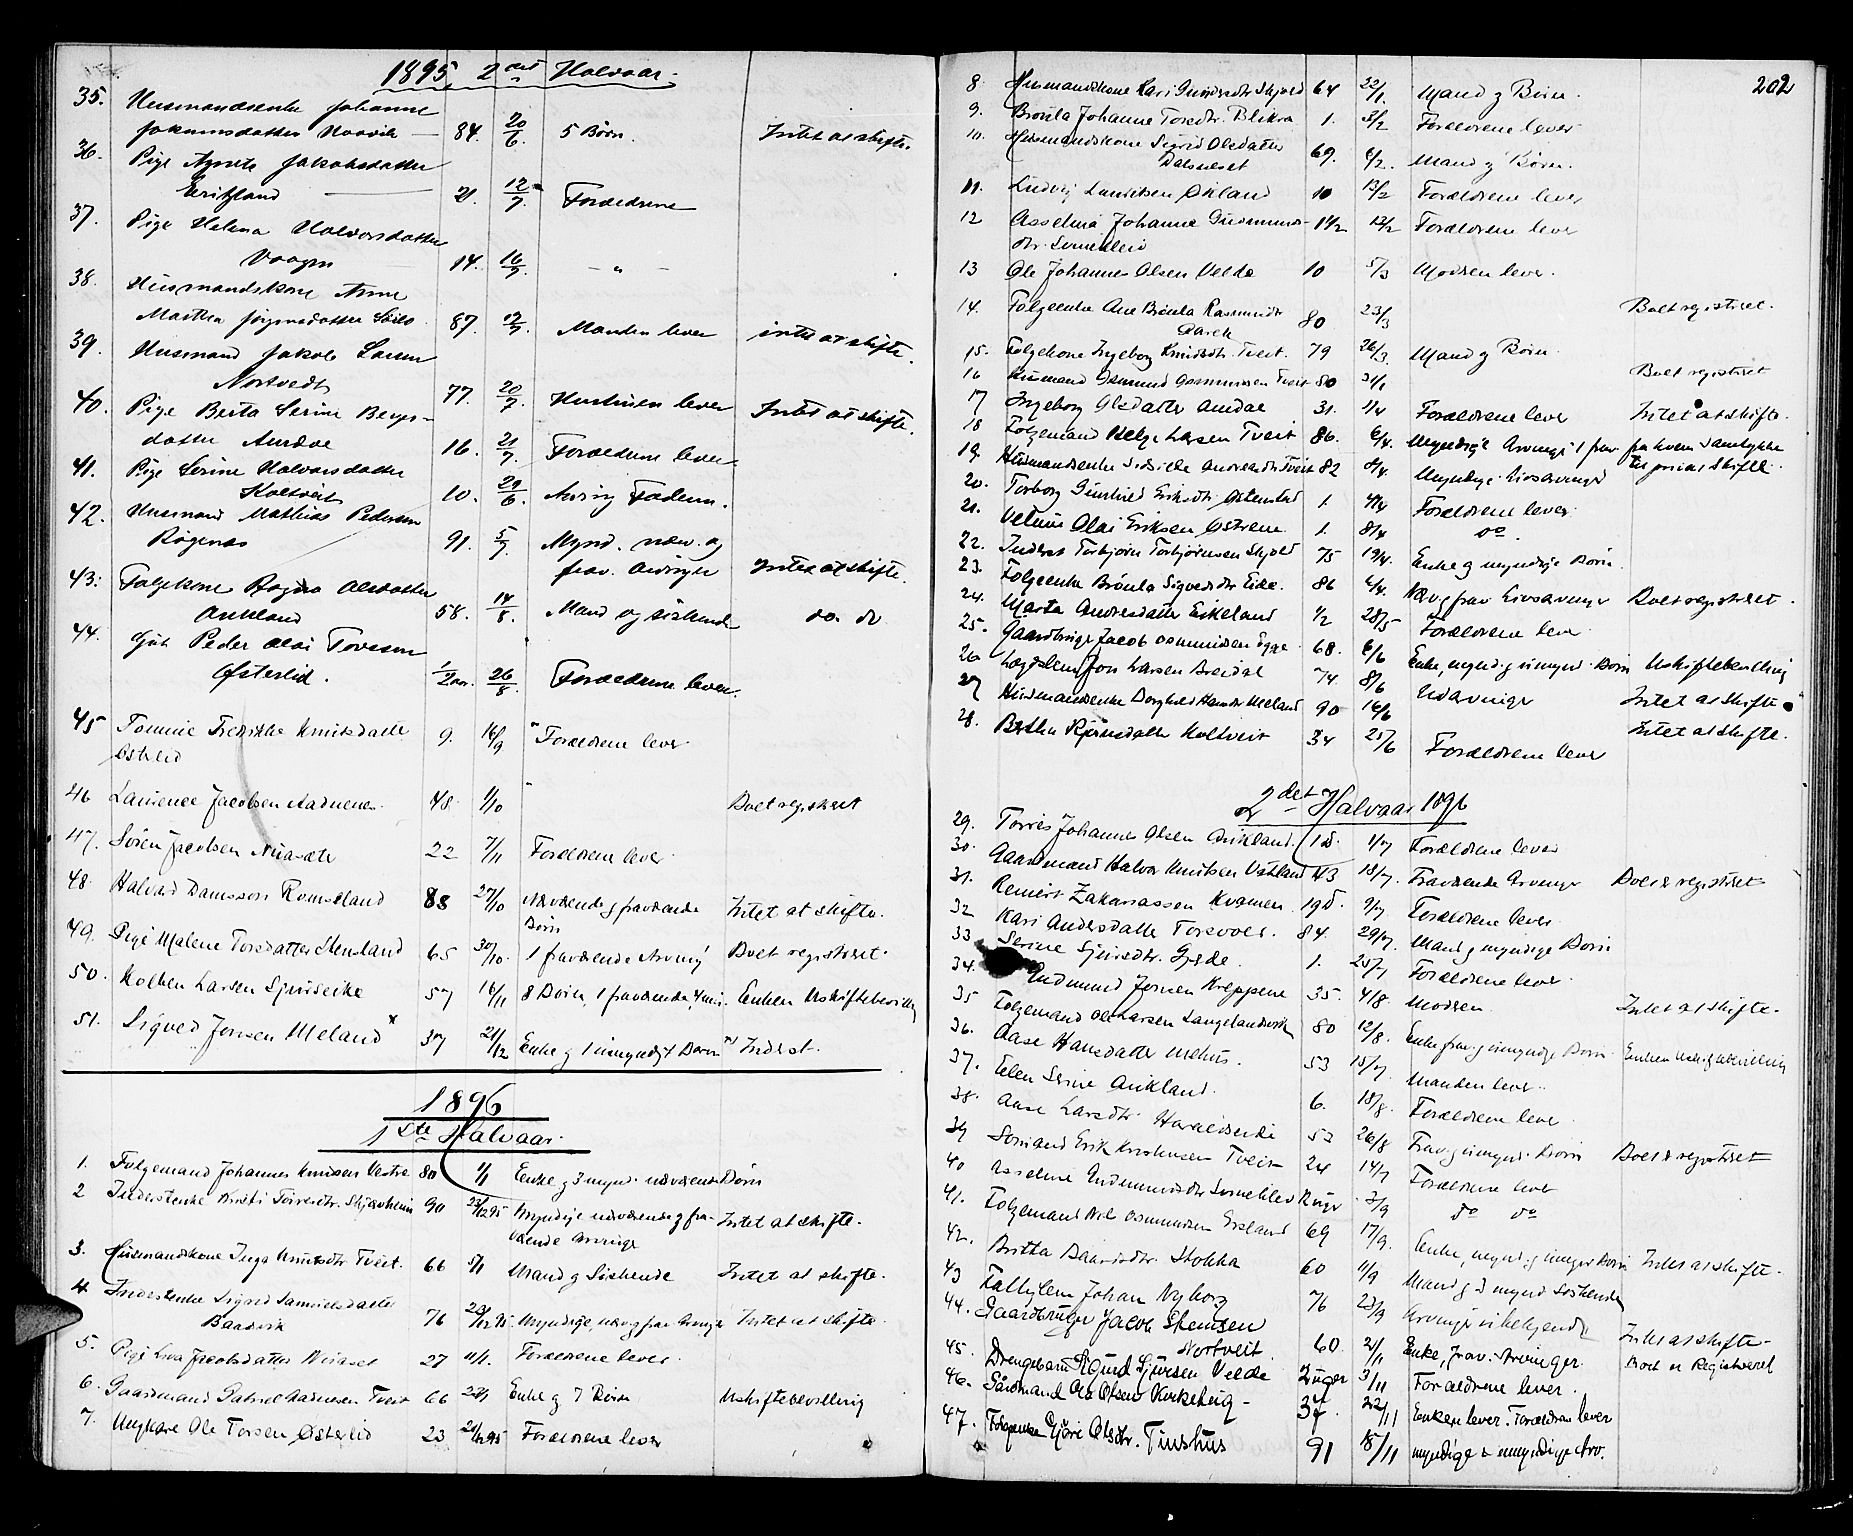 1895 2det Halvaar.
35. Husmandsenke Johanne
Jokumsdatter Haavik 84. 20/6. 5 Børn. Intet at skifte.
36. Pige Agnete Jakobsdatter
21. 12/7. Forældrene
37. Pige Helena Halvorsdatter
Vaagen 14. 16/7. — " —
38. Husmandskone Anne
Martha Jørgensdatter 87. 12/7. Manden lever intet at skifte.
39. Husmand Jakob Larsen
Nortvedt 77. 20/7. Hustruen lever Intet at skifte.
40. Pige Berta Serine Bergs-
datter Amdae 16. 21/7. Forældrene lever
41. Pige Serine Halvorsdatter
Holtveit 10. 29/6. Arving Faderen.
42. Husmand Mathias Pedersen
Røgenes 91. 5/7. Mynd. nærv. og
frav. Arvinger Intet at skifte.
43. Folgekone Ragna Olsdatter
Aukland 58. 14/8. Mand og Søskende do. do
44. Gut Peder Olai Toressen
Østerlid. 1/2 aar. 26/8. Forældrene lever.
45 Tomine Fredrikke Knutsdatter 9. 16/9 Forældrene lever
Østerlid
46 Laurence Jacobsen 48. 1/10 " Boet registreret
47. Søren Jacobsen 22 7/11 Forældrene lever
48. Halvard Danielsson Ramsland 88 27/10 Nærværende g fraværende Intet at skifte.
Børn
49. Pige Malene Torsdatter Stensland 65 30/10. 1 fraværende Arving Boet registreret.
50. Holken Larsen 57 16/11 8 Børn, 1 fraværende, Enken Uskiftebevilling
51. Sigved Jonsen Meland x 37 21/12 Enke g 1 umyndigt Barn Inderst.
1896
1ste Halvaar.
1. Folgemand Johannes Knudsen 80 1/1 Enke g 3 mynd. nærværende Børn
2 Inderstenke Kristi Torresdtr. Skjævheim 90 23/12 95 Myndige nærværende g fra- Intet at skifte.
værende Arvinge
3. Husmandskone Inga Knutsdtr Tveit. 66 5/1 Mand g Søskende Intet at skifte.
4 Inderstenke Sigrid Samuelsdatter
Baadsvik 76 28/12 95 Myndige, nærv g frav Arvinge Intet at skifte.
5. Pige Jacobsdatter 27 11/1. Forældrene lever
6. Gaardmand Gabriel Aadnesen Tveit 66 23/1 Enke g 7 Børn Uskiftebevilling
7. Ungkare Ole Torsen Østerlid 23 20/12 95 Forældrene lever
202
8. Husmandskone Kari Skjold 64 22/1. Mand g Børn.
9. Bronla Johanne Toresdtr. Blikra 1. 3/2 Forældrene lever
10. Husmandskone Sigrid Olsdatter
Dalsneset 69. 6/2. Mand g Børn.
11. Ludvig Lauritsen Økland 10 13/2 Forældrene lever
12 Asseline Johanne Gudmunds- 1 1/2 12/2 Forældrene lever
dtr.
13 Ole Johannes Olsen Velde 10 5/3 Modren lever.
14. Folgeenke Ane Brønla Rasmusdtr 80 23/3 Boet registreret.
15. Folgekone Ingeborg Knudsdtr. Tveit. 79 26/3 Mand g Børn.
16 Husmand Osmund Gasmundsen Tveit 80 31/1 Boet registreret
17 Ingeborg Olsdatter Amdae 31. 1/4 Forældrene lever Intet at skifte.
18 Folgemand Helge Larsen Tveit 86. 6/4. Myndige Arvinge 1 frav. fra hvem Samtykke
til privat Skifte.
19. Husmandsenke Andreasdtr Tveit 82 8/4 Myndige Livsarvinger
20. Torborg Gunhild Eriksdtr. Østenstad 1. 4/4 Forældrene lever
21. Olai Eriksen Østrem 1. 8/4 do.
22. Inderst Torbjørn Torbjørnsen Skjold 75 19/4. Enke g myndige Børn.
23. Folgeenke Brønla Sigvedsdtr Eide. 86 6/4. Nærv g frav Livsarvinger Boet registreret.
24. Marta Andersdatter Eikeland 1/2 28/5 Forældrene lever
25. Gaardbruger Jacob Osmundsen 68. 6/6 Enke, myndig g umynd. Børn Uskiftebevilling
26 Lægdslem Jon Larsen Breidal 74 8/6 Udarvinge Intet at Skifte
27 Husmandsenke Borghild Hansdtr Meland 90 16/6 Intet at Skifte.
28. Berthe Bjørnsdatter Holtveit 34 25/6 Forældrene lever
2det Halvaar 1896
29. Torres Johannes Olsen Aukland. 1 d. 1/7 Forældrene lever
30. Gaardmand Halvor Knutsen 43 18/7. Fraværende Arvinge Boet er registreret
31. Reinert Zakariassen Kvamen 19 d. 9/7 Forældrene lever
32 Kari Andersdatter 84. 29/7. Mand g myndige Børn
33 Serine Sjursdtr. 1. 25/7 Forældrene lever
34. Gudmund Jonsen 35. 4/8. Modren Intet at Skifte.
35 Folgemand Ole Larsen Langelandsvik 80 12/8. Enke frav. g umyndige Børn. Enken Uskiftebevilling
36. Aase Hansdatter 53 15/7 Manden lever.
37. Elen Serine Aukland. 6. 18/8. Forældrene lever
38. Aase Larsdtr. Haraldseide 52 26/8 Frav g umynd. Børn Boet er registreret
39 Erik Kristensen Tveit 24 14/7 Forældrene lever
40 Asseline Gudmundsdtr 3/9 do do
41. Folgemand Nils Osmundsen 69 17/9. Enke, myndig g umynd. Børn Intet at skifte.
42. Britta Baardsdtr. Stokka 60 11/9 Mand g mynd Søskende
43 Fattiglem Johan Nyborg 76 23/9 Arvinge ubekjendt Intet at skifte
44. Gaardbruger Jacob Stensen
Nortveit 60. 2/11 Enke, frav. Arvinger Boet er Registreret
45. Drengebarn Sigurd Sjursen Velde 2 uger 3/11 Forældrene lever.
46. Gardmand Ole Olsen Kirkehug 37. 22/11 Enken lever. Forældrene lever
47. Folgeenke Olsdtr. Tinshus 91 18/11 myndige & umyndige Arv.